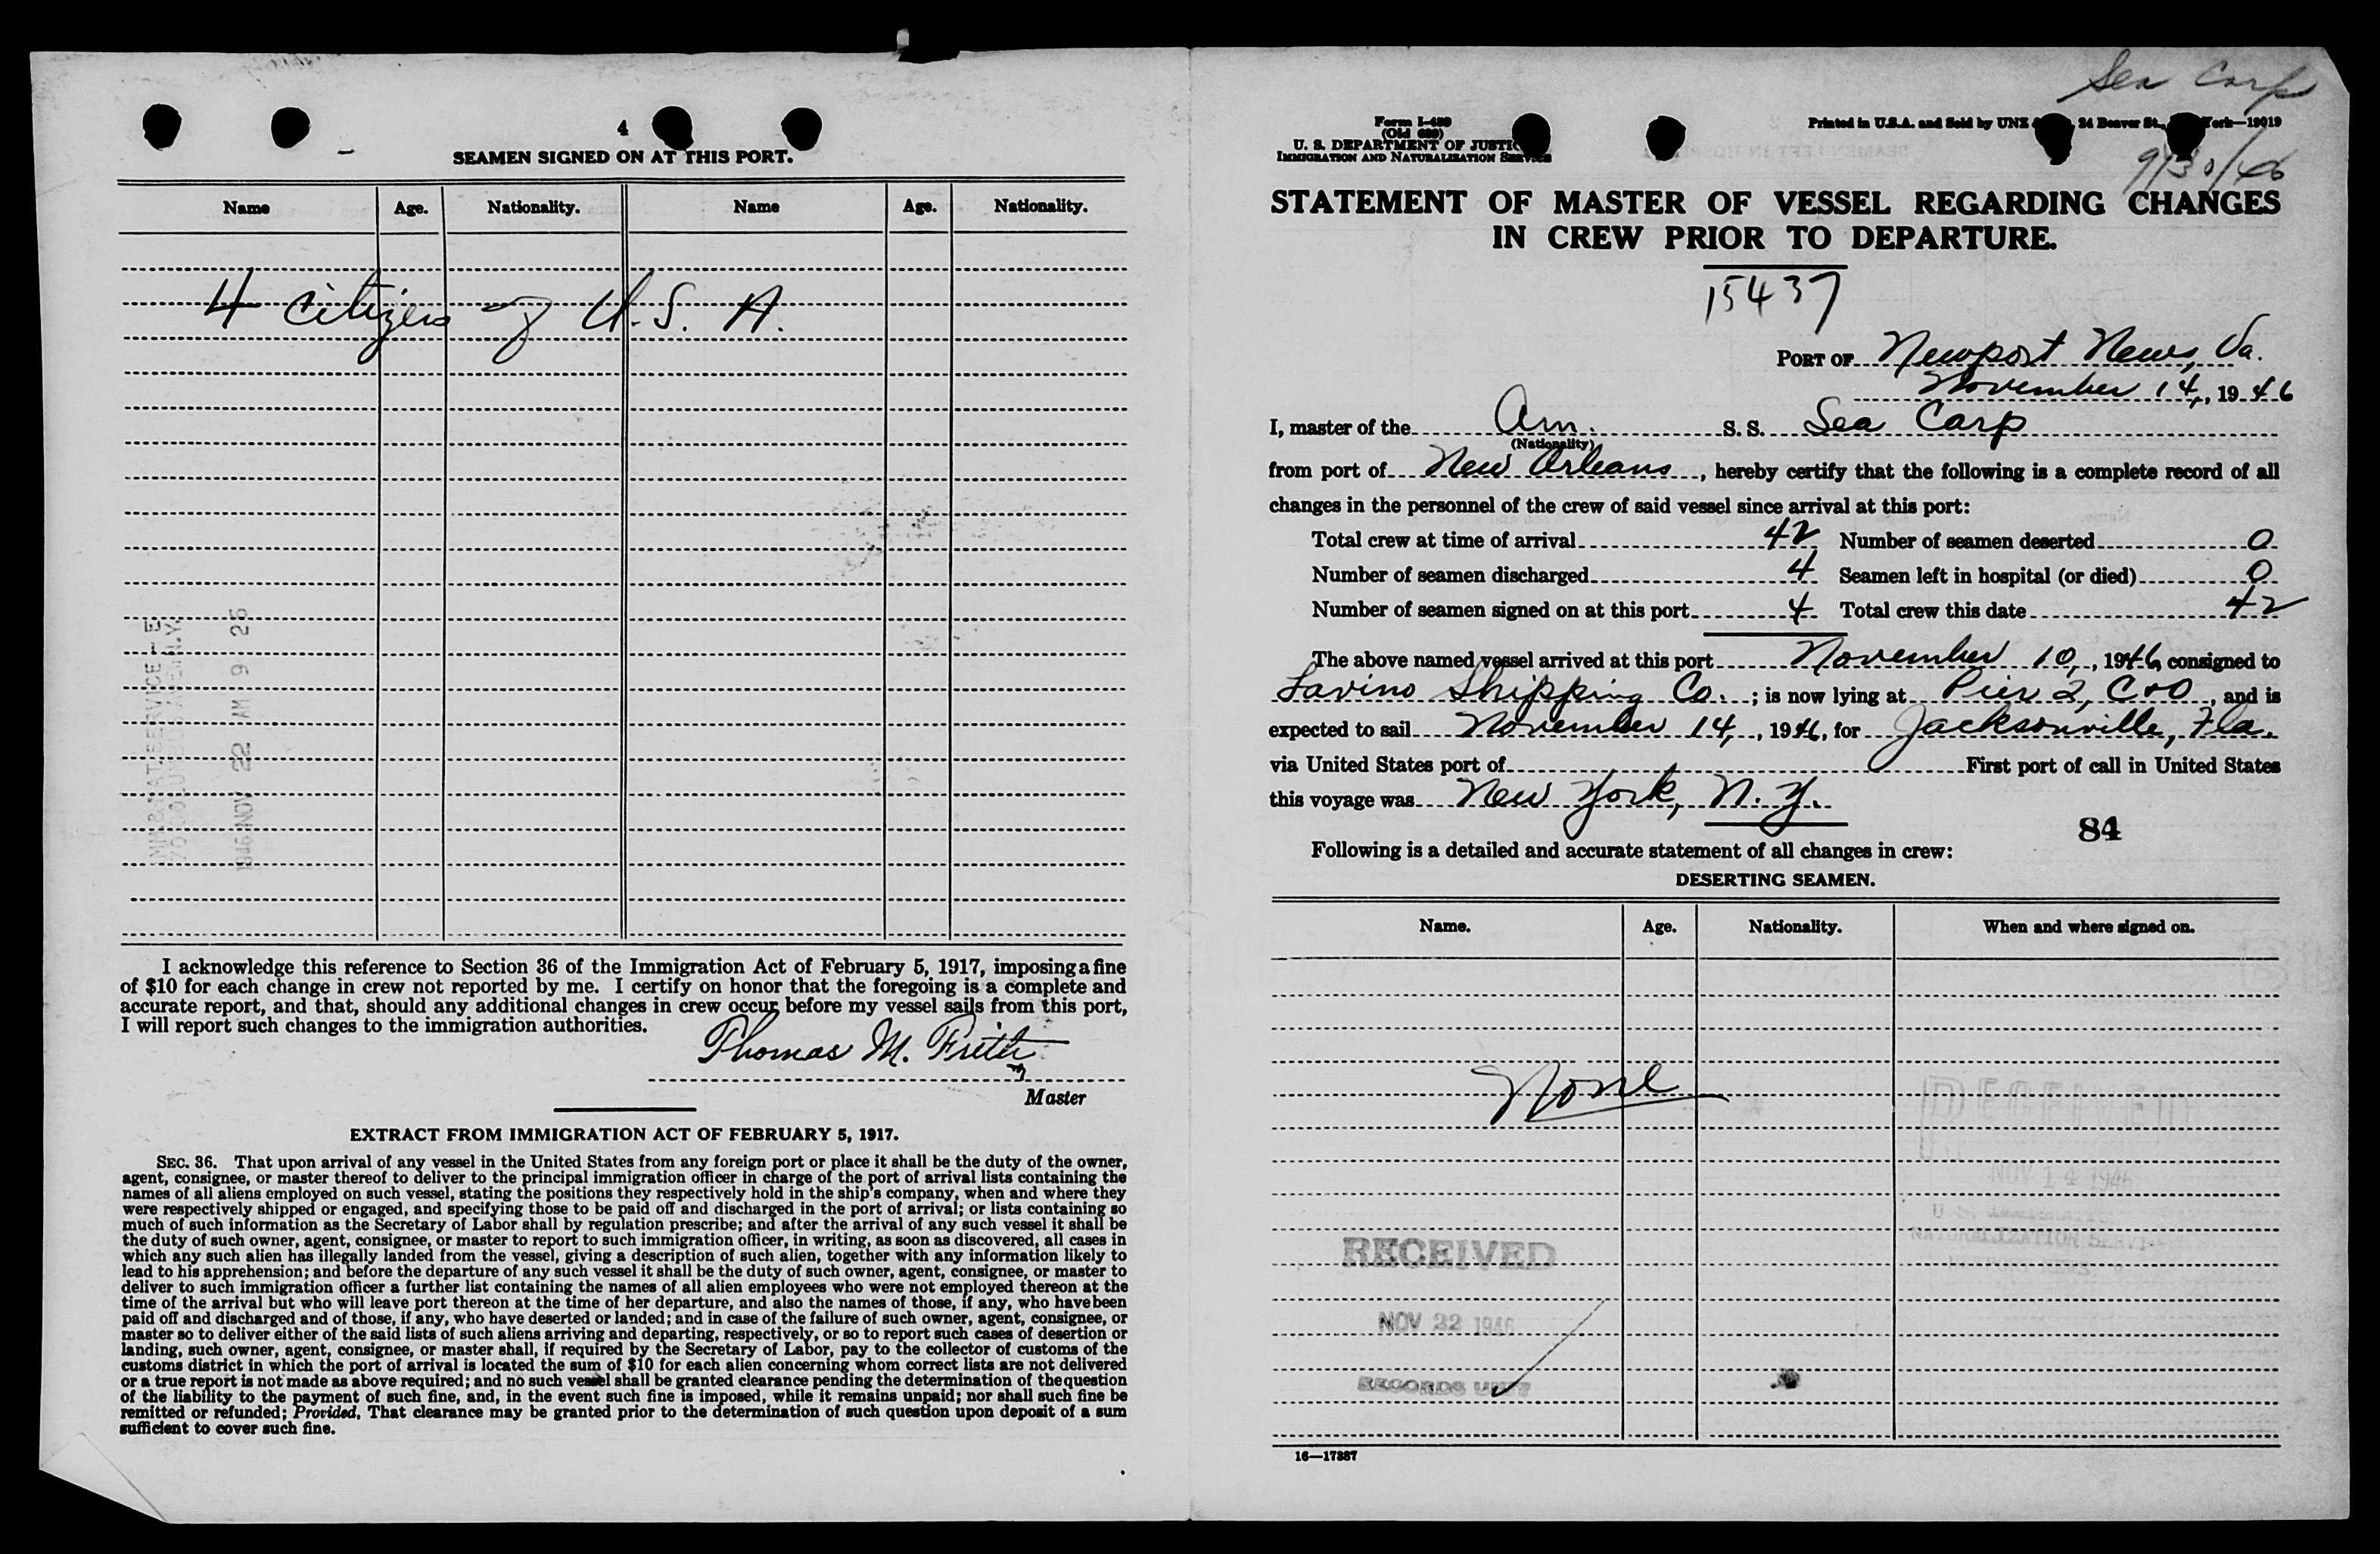 4
SEAMEN SIGNED ON AT THIS PORT.
Name Age. Nationality. Name Age. Nationality.
4 citizens of U.S.A.
I acknowledge this reference to Section 36 of the Immigration Act of February 5, 1917, imposing a fine
of $10 for each change in crew not reported by me. I certify on honor that the foregoing is a complete and
accurate report, and that, should any additional changes in crew occur before my vessel sails from this port,
I will report such changes to the immigration authorities.
Thomas M. Frith
Master
EXTRACT FROM IMMIGRATION ACT OF FEBRUARY 5, 1917.
SEC. 36. That upon arrival of any vessel in the United States from any foreign port or place it shall be the duty of the owner,
agent, consignee, or master thereof to deliver to the principal immigration officer in charge of the port of arrival lists containing the
names of all aliens employed on such vessel, stating the positions they respectively hold in the ship's company, when and where they
were respectively shipped or engaged, and specifying those to be paid off and discharged in the port of arrival; or lists containing so
much of such information as the Secretary of Labor shall by regulation prescribe; and after the arrival of any such vessel it shall be
the duty of such owner, agent, consignee, or master to report to such immigration officer, in writing, as soon as discovered, all cases in
which any such alien has illegally landed from the vessel, giving a description of such alien, together with any information likely to
lead to his apprehension; and before the departure of any such vessel it shall be the duty of such owner, agent, consignee, or master to
deliver to such immigration officer a further list containing the names of all alien employees who were not employed thereon at the
time of the arrival but who will leave port thereon at the time of her departure, and also the names of those, if any, who have been
paid off and discharged and of those, if any, who have deserted or landed; and in case of the failure of such owner, agent, consignee, or
master so to deliver either of the said lists of such aliens arriving and departing, respectively, or so to report such cases of desertion or
landing, such owner, agent, consignee, or master shall, if required by the Secretary of Labor, pay to the collector of customs of the
customs district in which the port of arrival is located the sum of $10 for each alien concerning whom correct lists are not delivered
or a true report is not made as above required; and no such vessel shall be granted clearance pending the determination of the question
of the liability to the payment of such fine, and, in the event such fine is imposed, while it remains unpaid; nor shall such fine be
remitted or refunded; Provided, That clearance may be granted prior to the determination of such question upon deposit of a sum
sufficient to cover such fine.
Sea Carp
Form I-489
(Old 689)
U. S. DEPARTMENT OF JUSTICE
IMMIGRATION AND NATURALIZATION SERVICE
Printed in U.S.A. and Sold by UNZ 24 Beaver St., York—19019
9/30/46
STATEMENT OF MASTER OF VESSEL REGARDING CHANGES
IN CREW PRIOR TO DEPARTURE.
15437
PORT OF Newport News, Va.
November 14, 1946
I, master of the Am. S. S. Sea Carp
(Nationality)
from port of New Orleans, hereby certify that the following is a complete record of all
changes in the personnel of the crew of said vessel since arrival at this port:
Total crew at time of arrival 42 Number of seamen deserted 0
Number of seamen discharged 4 Seamen left in hospital (or died) 0
Number of seamen signed on at this port 4 Total crew this date 42
The above named vessel arrived at this port November 10, 1946, consigned to
Lavino Shipping Co.; is now lying at Pier 2, C&O, and is
expected to sail November 14, 1946, for Jacksonville, Fla.
via United States port of First port of call in United States
this voyage was New York, N.Y.
84
Following is a detailed and accurate statement of all changes in crew:
DESERTING SEAMEN.
Name. Age. Nationality. When and where signed on.
None
RECEIVED
NOV 14 1946
RECEIVED
NOV 22 1946
RECORDS UNIT
16—17387